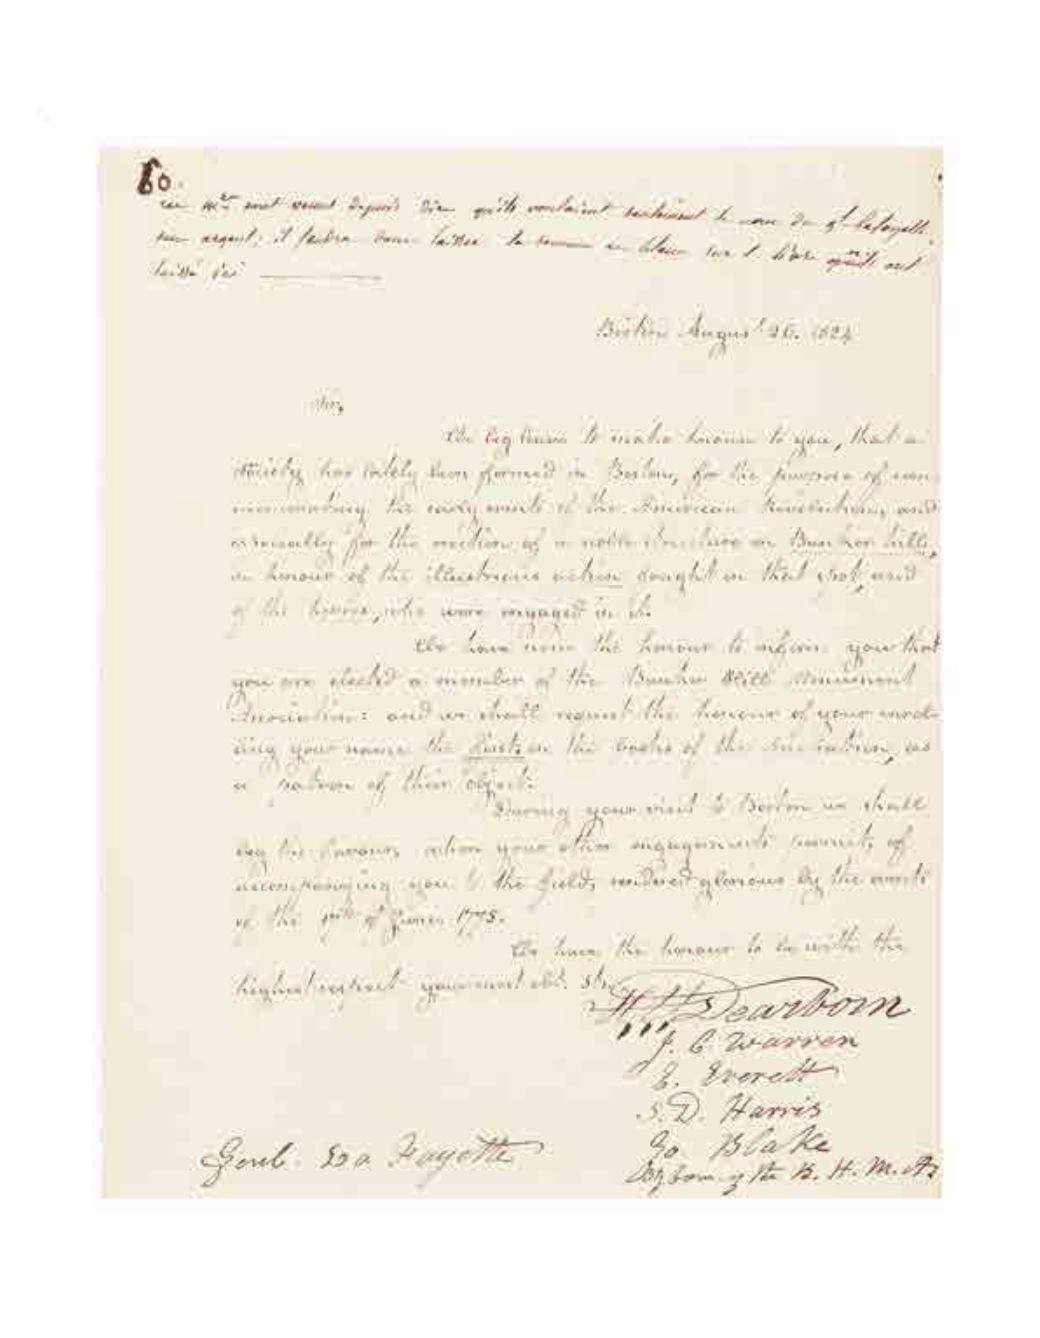 60.
ces Mrs sont venus depuis dire qu'ils voulaient seulement le nom du gl Lafayette,
son argent; il faudra donc laisser la somme en blanc sur le livre qu'ils ont
laissé ici
Boston August 26. 1824
Sir,
We beg leave to make known to you, that a
society has lately been formed in Boston, for the purpose of com-
memorating the early events of the American Revolution, and
especially for the erection of a noble structure on Bunker hill,
in honour of the illustrious action fought on that spot, and
of the heroes, who were engaged in it.
We have now the honour to inform you that
you are elected a member of the Bunker Hill Monument
Association: and we shall request the honour of your enrol-
ling your name the first, in the books of the Association, as
a patron of their object.
During your visit to Boston we shall
beg the favour, when your other engagements permit, of
accompanying you to the field, rendered glorious by the events
of the 17th of June, 1775.
We have the honour to be with the
highest respect your most obt. Sts,
H A S Dearborn
J. C. Warren
E. Everett
S. D. Harris
Go Blake
Genl. La Fayette
of the B. H. M. A.